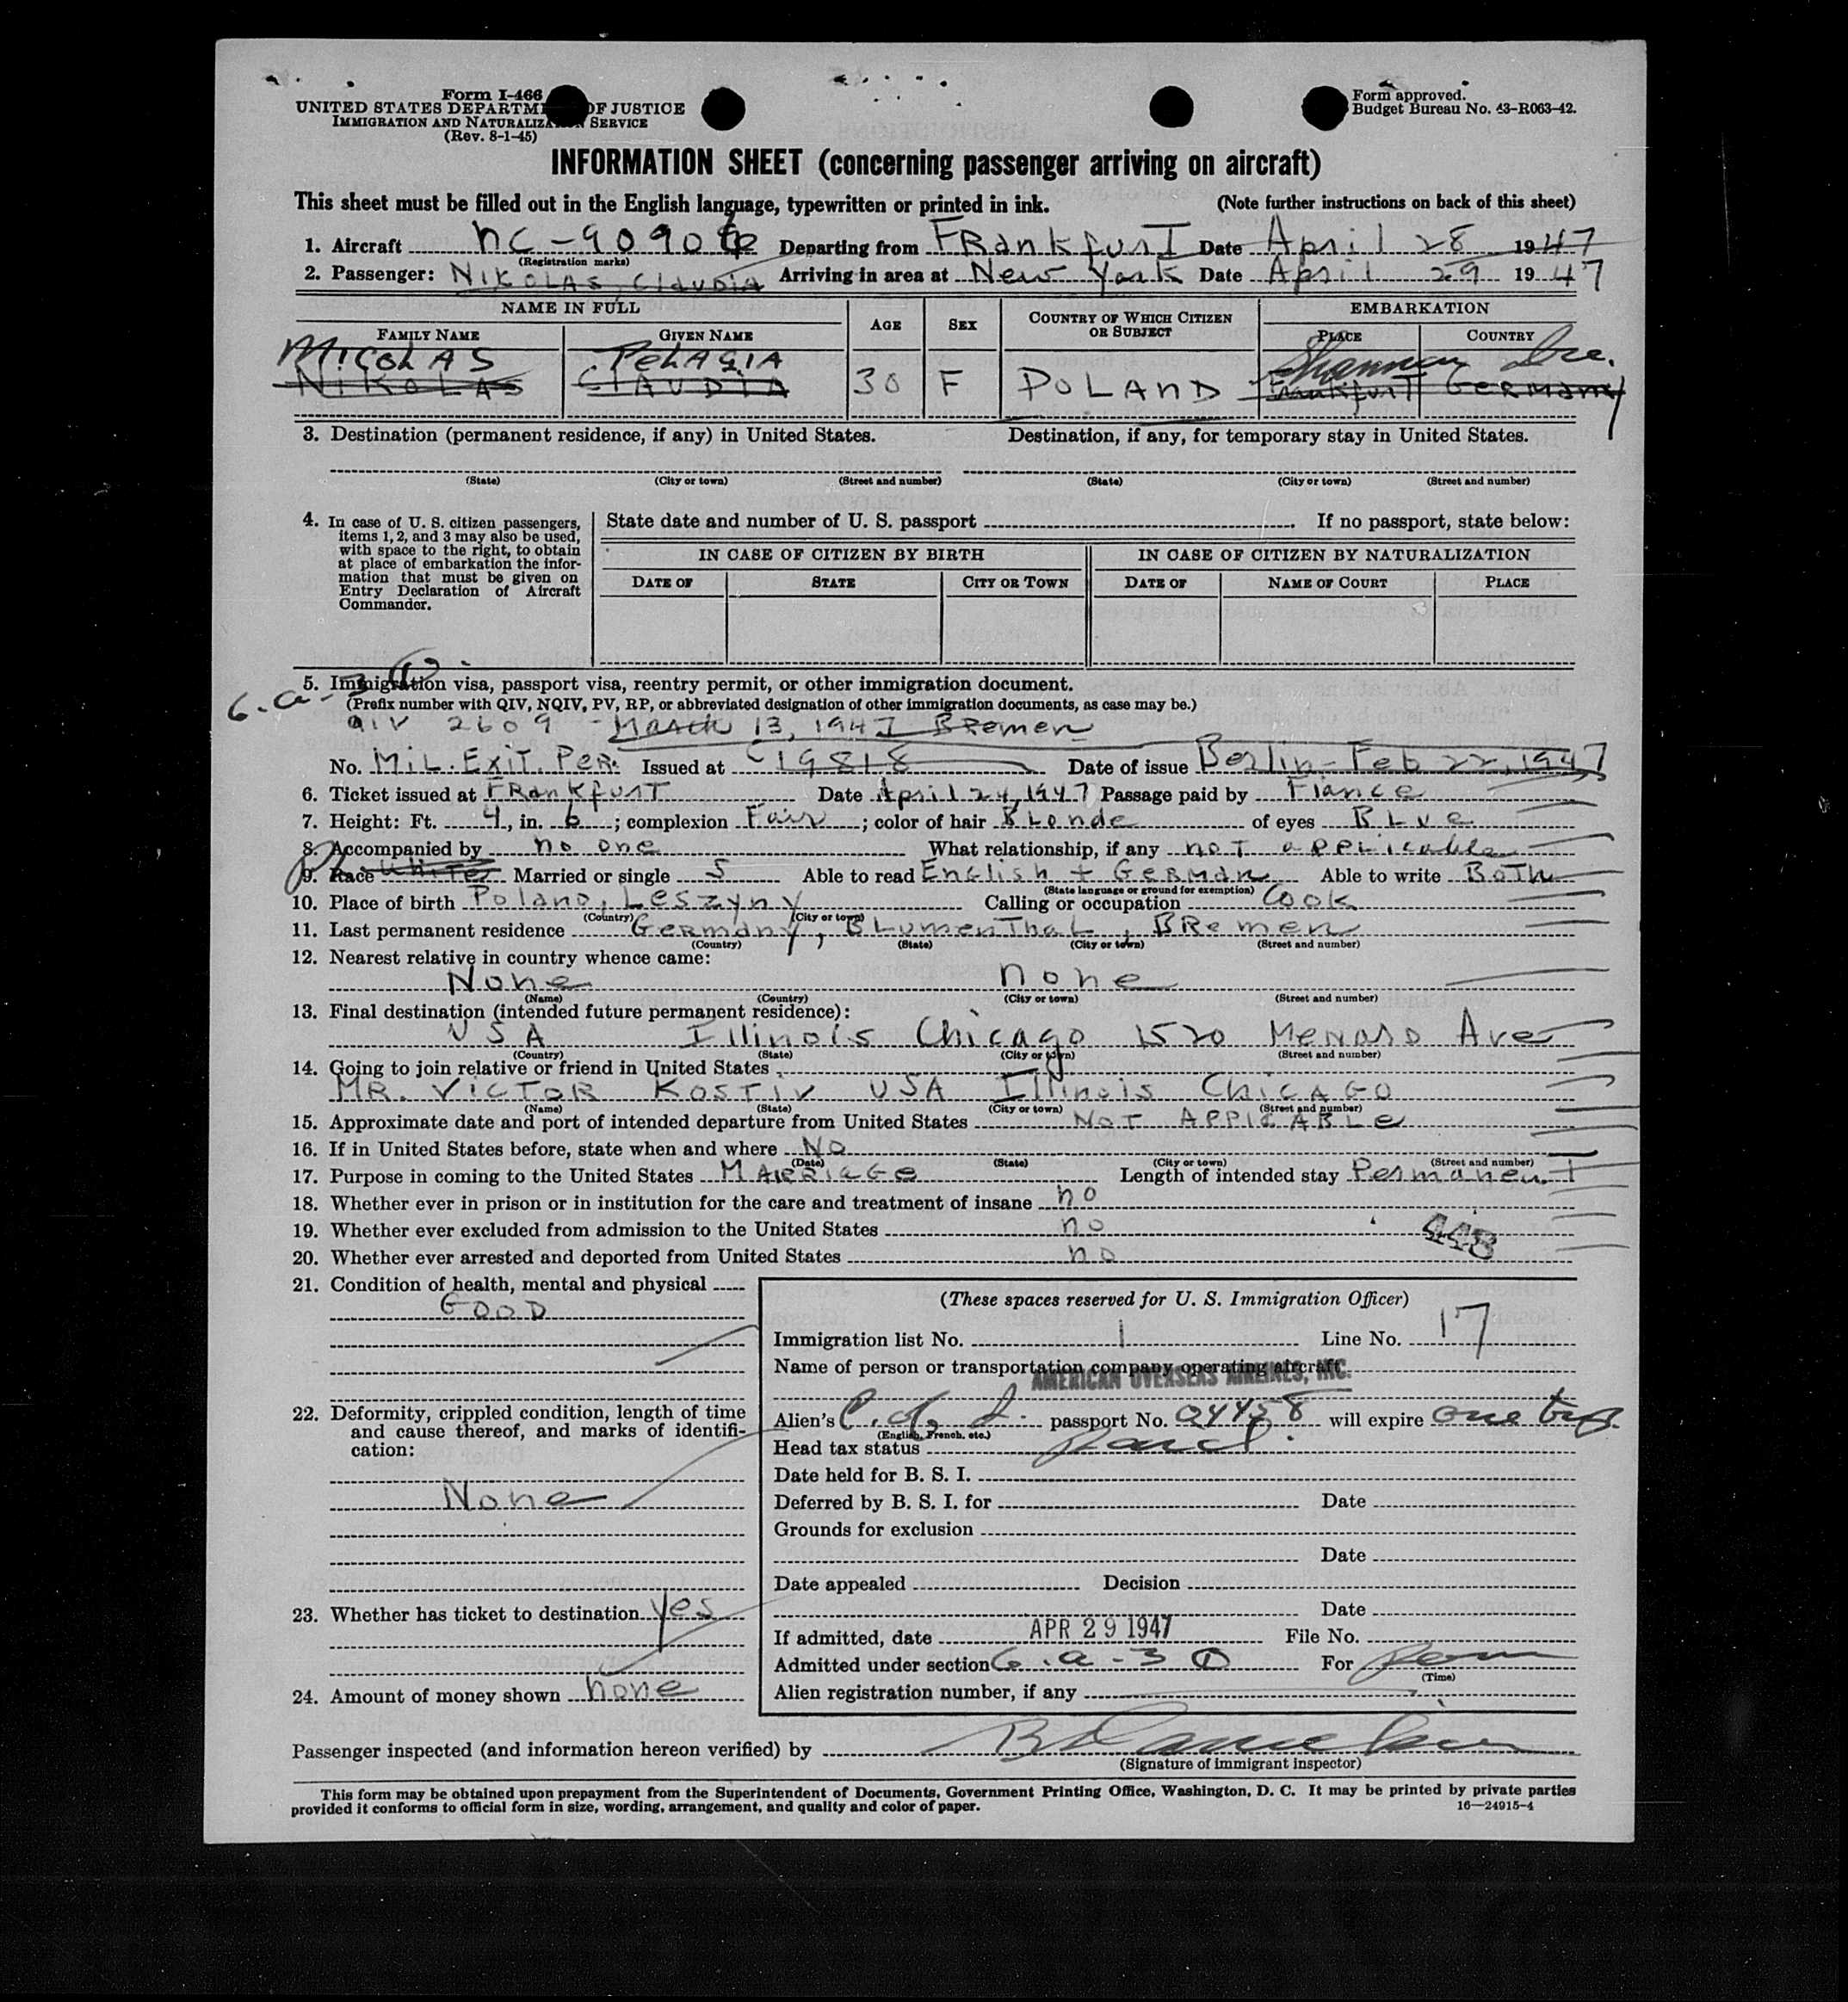 Form I-466
UNITED STATES DEPARTMENT OF JUSTICE
IMMIGRATION AND NATURALIZATION SERVICE
(Rev. 8-1-45)
Form approved.
Budget Bureau No. 43-R063-42.
INFORMATION SHEET (concerning passenger arriving on aircraft)
This sheet must be filled out in the English language, typewritten or printed in ink. (Note further instructions on back of this sheet)
1. Aircraft NC-90904 Departing from FRankfurT Date April 28 1947
(Registration marks)
2. Passenger: NIKOLAS, CLAUDIA Arriving in area at New York Date April 29 1947
NAME IN FULL AGE SEX COUNTRY OF WHICH CITIZEN OR SUBJECT EMBARKATION
FAMILY NAME GIVEN NAME PLACE COUNTRY
MICOLAS PELAGIA Shannon Ire.
NIKOLAS CLAUDIA 30 F POLAND FrankfurT Germany
3. Destination (permanent residence, if any) in United States. Destination, if any, for temporary stay in United States.
(State) (City or town) (Street and number) (State) (City or town) (Street and number)
4. In case of U. S. citizen passengers, items 1, 2, and 3 may also be used, with space to the right, to obtain at place of embarkation the information that must be given on Entry Declaration of Aircraft Commander.
State date and number of U. S. passport . If no passport, state below:
IN CASE OF CITIZEN BY BIRTH IN CASE OF CITIZEN BY NATURALIZATION
DATE OF STATE CITY OR TOWN DATE OF NAME OF COURT PLACE
6.a-3 (1)
5. Immigration visa, passport visa, reentry permit, or other immigration document.
(Prefix number with QIV, NQIV, PV, RP, or abbreviated designation of other immigration documents, as case may be.)
QIV 2609 - March 13, 1947 Bremen
No. MiL. Exit. PeR. Issued at 19818 Date of issue Berlin - Feb 22, 1947
6. Ticket issued at FRankfurT Date April 24, 1947 Passage paid by Fiance
7. Height: Ft. 4, in. 6; complexion Fair; color of hair BLonde of eyes BLue
8. Accompanied by no one What relationship, if any noT applicable
9. Race White Married or single S Able to read English + German Able to write BoTh
(State language or ground for exemption)
10. Place of birth Poland, Leszyny Calling or occupation Cook
(Country) (City or town)
11. Last permanent residence Germany, BLumenThaL, BRemen
(Country) (State) (City or town) (Street and number)
12. Nearest relative in country whence came:
None none
(Name) (Country) (City or town) (Street and number)
13. Final destination (intended future permanent residence):
USA Illinois Chicago 1520 MeNARD Ave
(Country) (State) (City or town) (Street and number)
14. Going to join relative or friend in United States
MR. VICTOR KOSTIV USA Illinois CHICAGO
(Name) (State) (City or town) (Street and number)
15. Approximate date and port of intended departure from United States NOT APPICABLe
16. If in United States before, state when and where No
(Date) (State) (City or town) (Street and number)
17. Purpose in coming to the United States MARRIAGe Length of intended stay PermanenT
18. Whether ever in prison or in institution for the care and treatment of insane no
19. Whether ever excluded from admission to the United States no
448
20. Whether ever arrested and deported from United States no
21. Condition of health, mental and physical
GOOD
22. Deformity, crippled condition, length of time and cause thereof, and marks of identification:
None
23. Whether has ticket to destination yes
24. Amount of money shown none
(These spaces reserved for U. S. Immigration Officer)
Immigration list No. 1 Line No. 17
Name of person or transportation company operating aircraft
AMERICAN OVERSEAS AIRLINES, INC.
Alien's passport No. 04458 will expire one trip.
(English, French, etc.)
Head tax status
Date held for B. S. I.
Deferred by B. S. I. for Date
Grounds for exclusion
Date
Date appealed Decision
Date
If admitted, date APR 29 1947 File No.
Admitted under section 6.a-3 (1) For Perm
(Time)
Alien registration number, if any
Passenger inspected (and information hereon verified) by
(Signature of immigrant inspector)
This form may be obtained upon prepayment from the Superintendent of Documents, Government Printing Office, Washington, D. C. It may be printed by private parties
provided it conforms to official form in size, wording, arrangement, and quality and color of paper. 16—24915-4